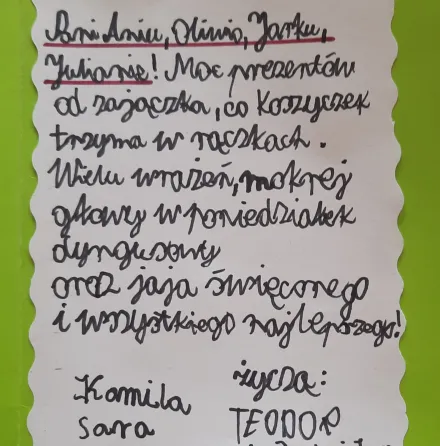 Pani Aniu, Oliwio, Jarku,
Julianie! Moc prezentów
od zajączka, co koszyczek
trzyma w rączkach.
Wielu wrażeń, mokrej
głowy w poniedziałek
dyngusowy
oraz jaja święconego
i wszystkiego najlepszego!
życzą:
Kamila
Sara TEODOR